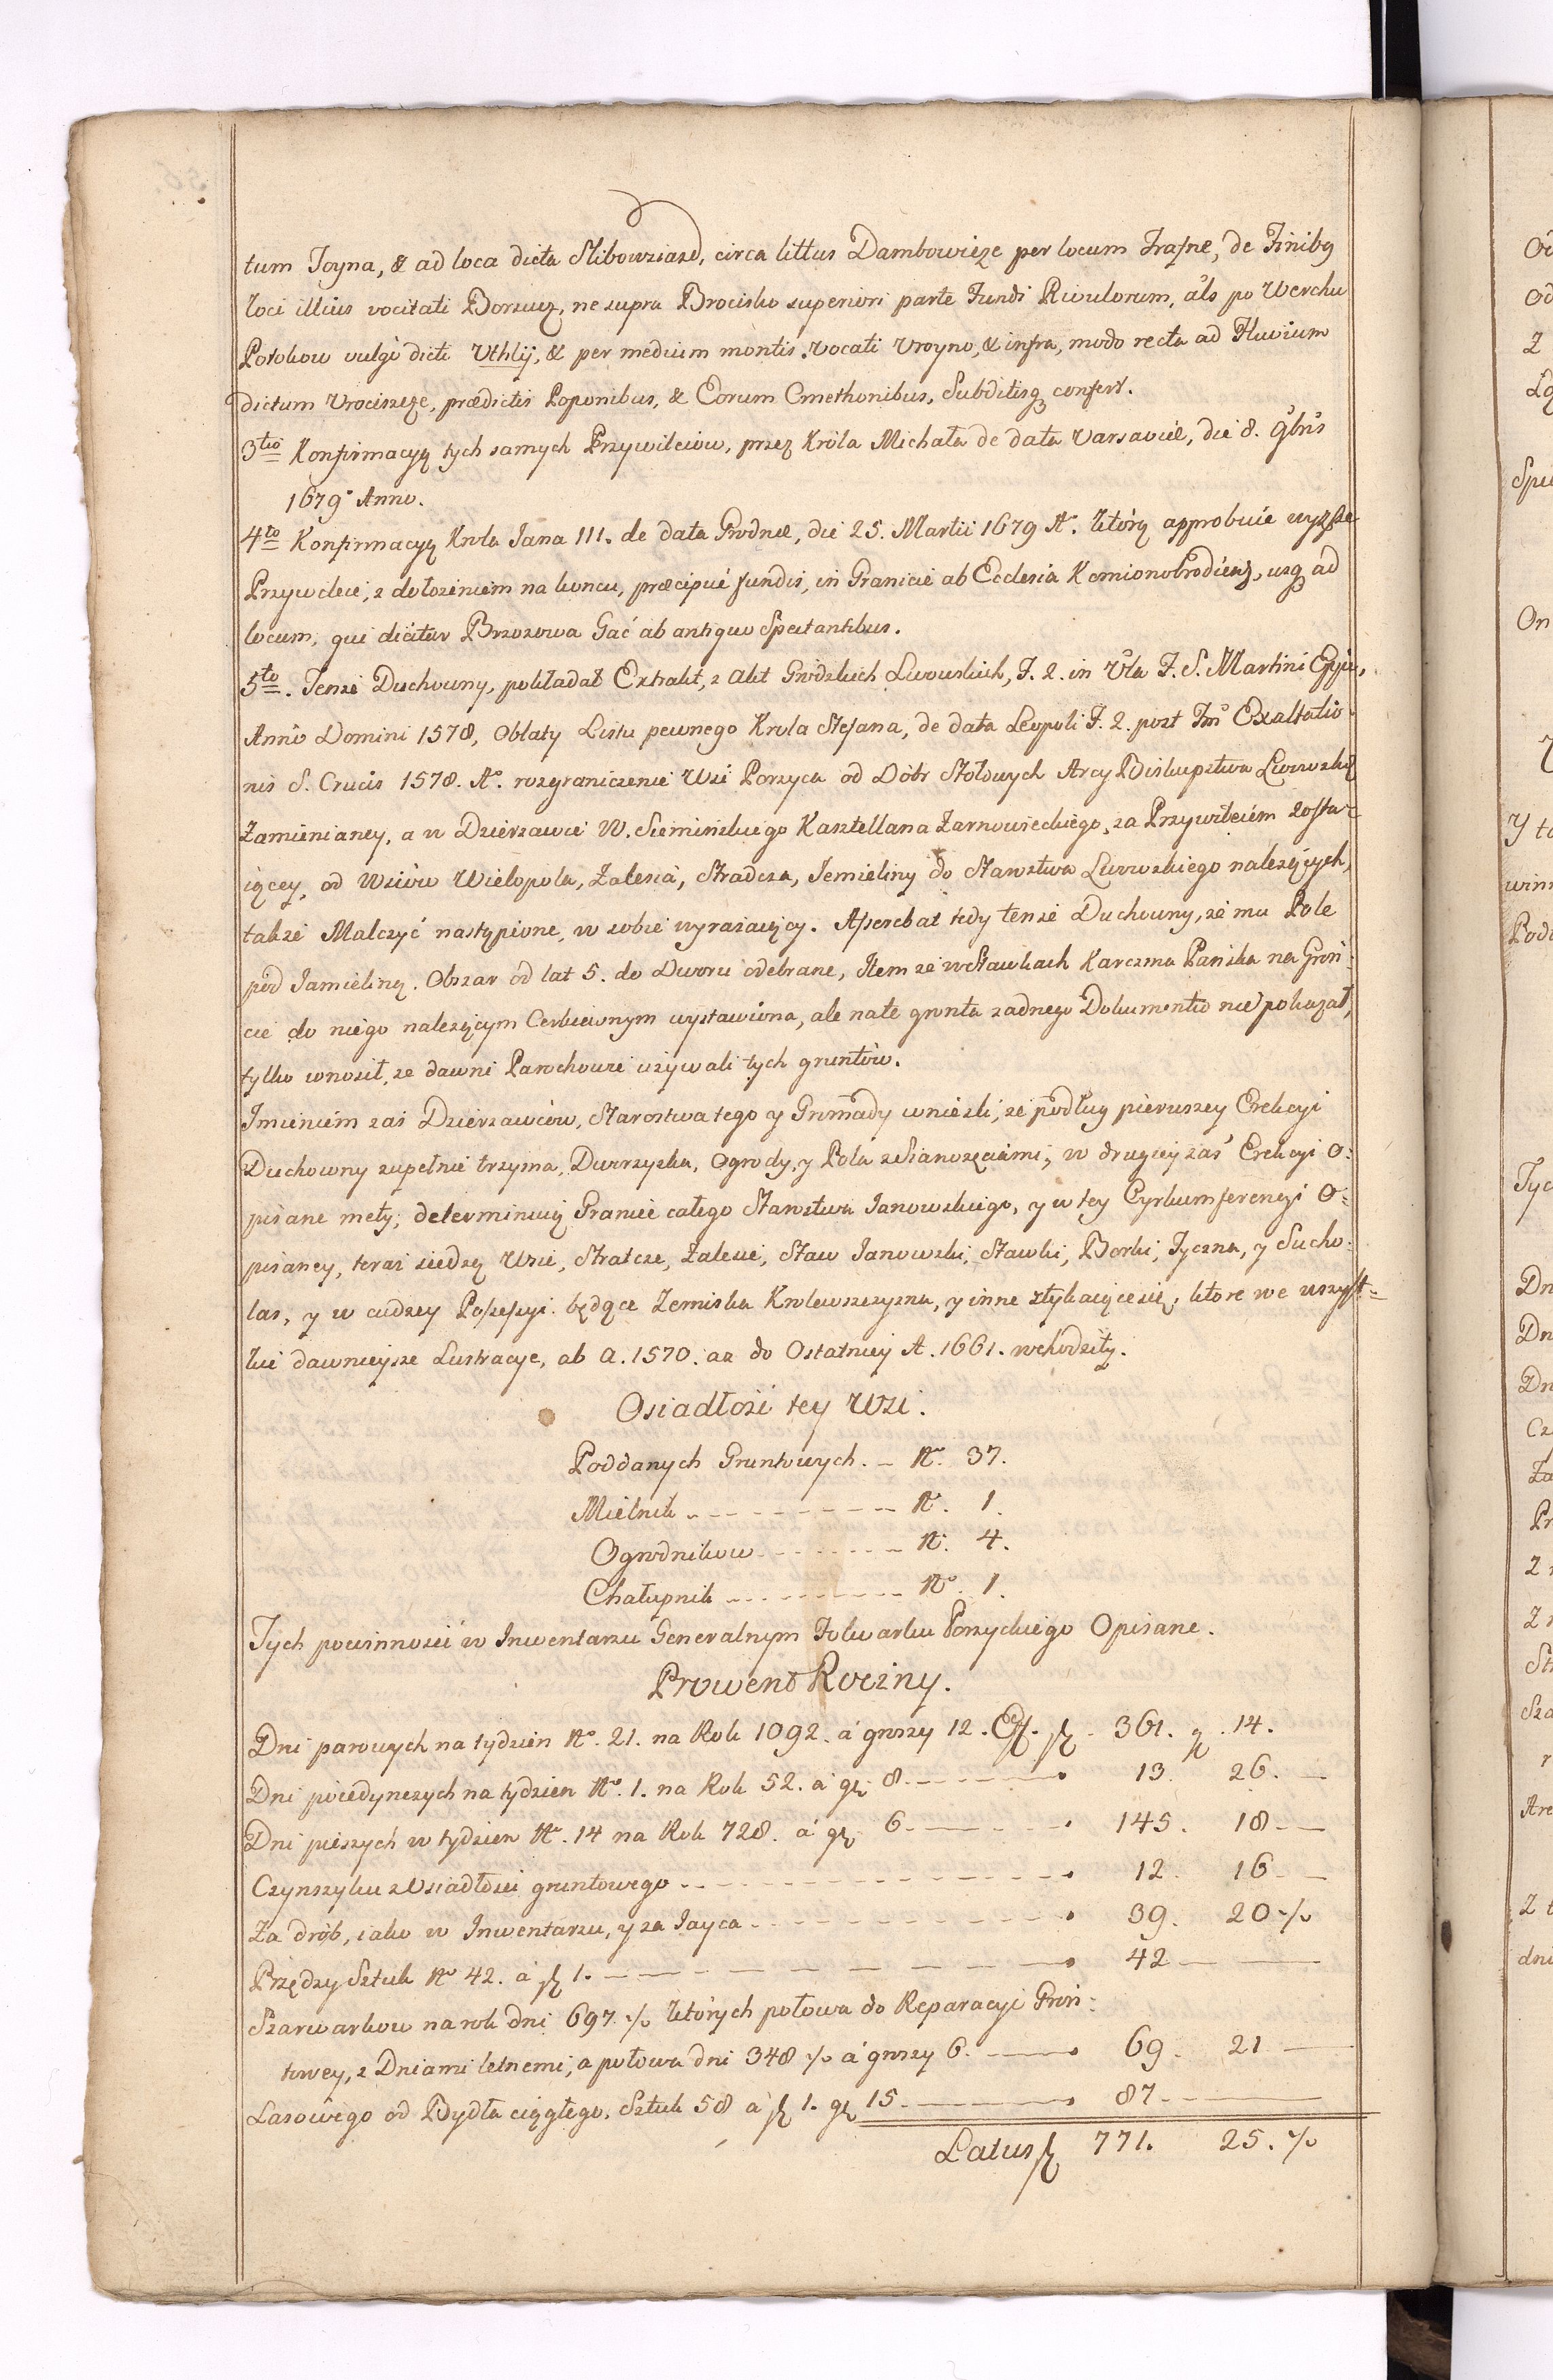 tum Joyna, & ad loca dicta Slibowziazd, circa littus Dambowieze per locum Trasne, de Finibg
loci illius vocitati Borzucz, ne supra Brocisko superiori parte Fundi Rivulorum, als po Werchu
Potokow vulgò dicti Vthlÿ, & per medium montis vocati Uroyno, & infra, modo recta ad Fluvium
dictum Urociszcze, prædictis Poponibus, & Eorum Cmethonibus, Subditisq confert.
3tio Konfirmacyą tych samych Przywileiow, przez Króla Michała de data Varsaviæ, die 8. 9bris
1679 Anno.
4to Konfirmacyą Krola Jana III. de data Grodnæ, die 25. Martii 1679 Ao. którą approbuie wyższe
Przywileie, z dołożeniem na koncu, præcipuè fundis, in Granicie ab Ecclesia Kamionobrodiens, usq ad
locum, qui dicitur Brzozowa Gać ab antiquo Spectantibus.
5to. Tenże Duchowny, pokładał Extrakt, z Akt Grodzkich Lwowskich, F. 2. in Vla F. S. Martini Eppi,
Anno Domini 1578, Oblaty Listu pewnego Krola Stefana, de data Leopoli F. 2. post Fm Exaltatio
nis S. Crucis 1578. Ao. rozgraniczenie Wsi Porzyca od Dóbr Stołowych Arcy Biskupstwa Lwowską
Zamienianey, a w Dzierzawie W. Siemińskiego Kasztellana Żarnowieckiego, za Przywileiem zosta-
iącey, od Wsiów Wielopola, Zalesia, Stradcza, Jemieliny do Starostwa Lwowskiego należących,
także Malczyć nastąpione, w sobie wyrażaiący. Asserebat tedy tenże Duchowny, że mu Pole
pod Jamieliną. Obszar od lat 5. do Dworu odebrane, Item że w Stawkach Karczma Pańska na Gron:
cie do niego należącym Cerkiewnym wystawiona, ale na te grunta żadnego Dokumentu nie pokazał,
tylko wnosił, że dawni Parochowie używali tych gruntów.
Imieniem zaś Dzierżawców, Starostwa tego y Gromady wnieśli, że podług pierwszey Erekcyi
Duchowny zupełnie trzyma, Dworzyska, Ogrody, y Pola z Sianożęciami, w drugiey zaś Erekcyi O:
pisane mety, determinuią Granice całego Starostwa Janowskiego, y w tey Cyrkumferencyi O:
pisaney, teraz siedzą Wsie, Stratcze, Zalesie, Staw Janowski, Stawki, Borki, Tyczna, y Sucho:
las, y w cudzey Possessyi będące Zemiska Krolewszczyzna, y inne stykaiące się, ktore we wszyst=
kie dawnieysze Lustracye, ab A. 1570. aa do Ostatniey A. 1661. wchodziły.
Osiadłość tey Wsi.
Poddanych Gruntowych. - No. 37.
Mielnik - - - No. 1.
Ogrodnikow - - - No. 4.
Chałupnik - - - No. 1.
Tych powinności w Inwentarzu Generalnym Folwarku Porzyckiego Opisane.
Prowent Roczny.
Dni parowych na tydzien No. 21. na Rok 1092. á groszy 12. Eff. fl - 361. g. 14.
Dni poiedynczych na tydzien No. 1. na Rok 52. á gr. 8. - - - 13. 26. -
Dni pieszych w tydzien No. 14 na Rok 728. á gr. 6. - - - 145. 18. -
Czynszyku z Osiadłości gruntowego - - - 12. 16. -
Za drób, iako w Inwentarzu, y za Jayca - - - 39. 20 ·/.
Przędzy Sztuk No 42. á fl 1. - - - 42 - -
Szarwarkow na rok dni 697 ·/. których połowa do Reparacyi Gron:
towey, z Dniami letnemi, a połowa dni 348 ·/. á groszy 6. - 69. 21 -
Lasowego od Bydła ciągłego. Sztuk 58 a fl 1. gr 15. - 87. -
Latus fl 771. 25. ·/.